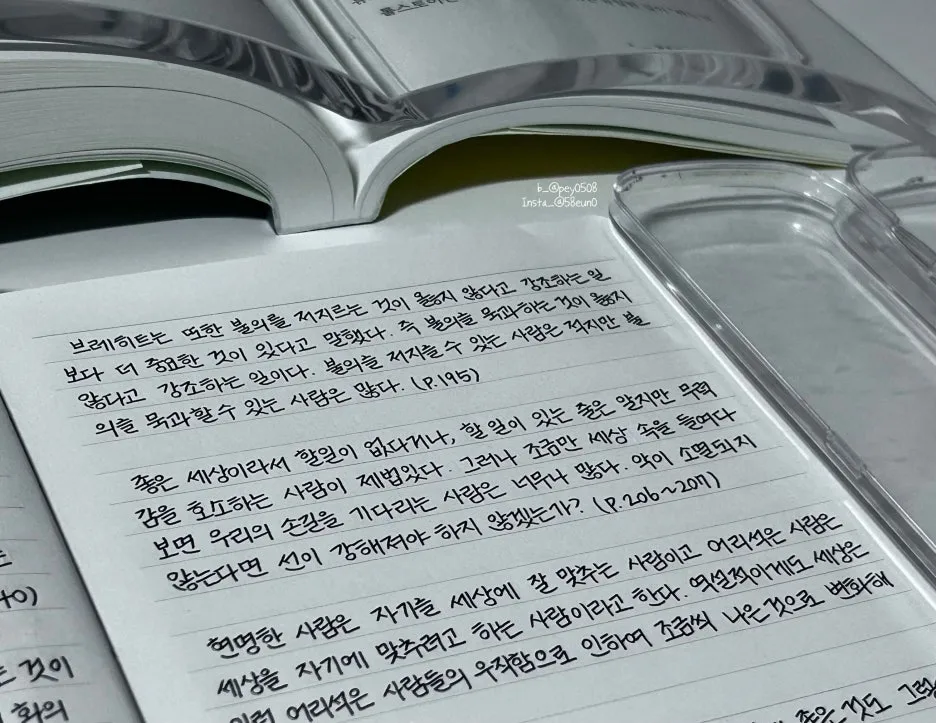 톨스토이는
b_@pey0508
Insta_@58eun0
브레히트는 또한 불의를 저지르는 것이 옳지 않다고 강조하는 일
보다 더 중요한 것이 있다고 말했다. 즉 불의를 묵과하는 것이 옳지
않다고 강조하는 일이다. 불의를 저지를 수 있는 사람은 적지만 불
의를 묵과할 수 있는 사람은 많다. (p.195)
좋은 세상이라서 할일이 없다거나, 할 일이 있는 줄은 알지만 무력
감을 호소하는 사람이 제법있다. 그러나 조금만 세상 속을 들여다
보면 우리의 손길을 기다리는 사람은 너무나 많다. 악이 소멸되지
않는다면 선이 강해져야 하지 않겠는가? (p.206~207)
현명한 사람은 자기를 세상에 잘 맞추는 사람이고 어리석은 사람은
세상을 자기에 맞추려고 하는 사람이라고 한다. 역설적이게도 세상은
이런 어리석은 사람들의 우직함으로 인하여 조금씩 나은 것으로 변화해
좋은 것도
것이
화의